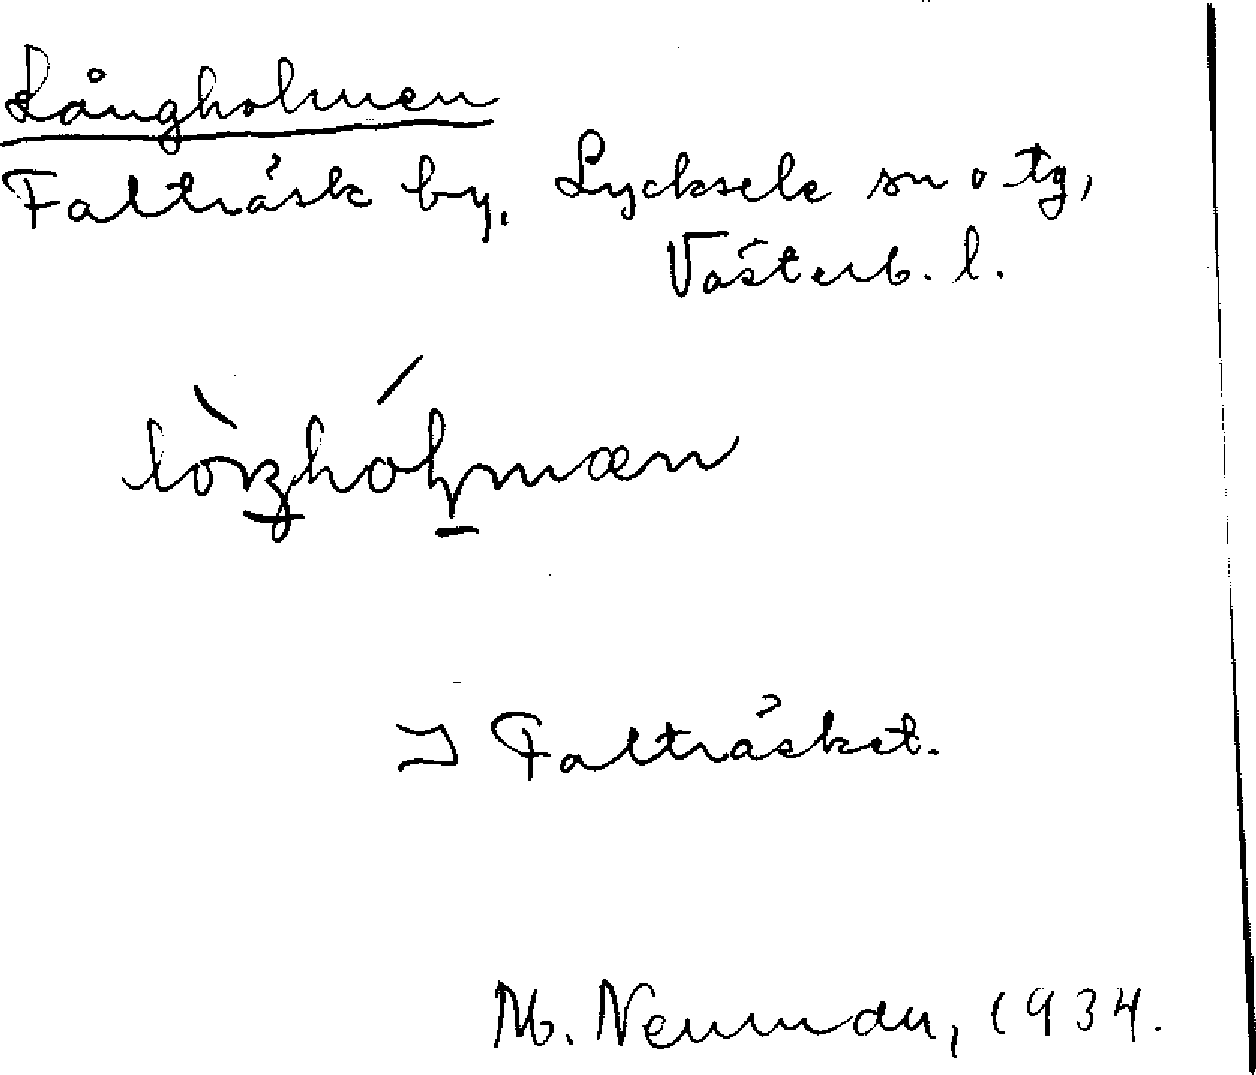 Långholmen
Falträsk by, Lycksele sn o tg,
Västerb. l.
I Falträsket.
M. Nenman, 1934.